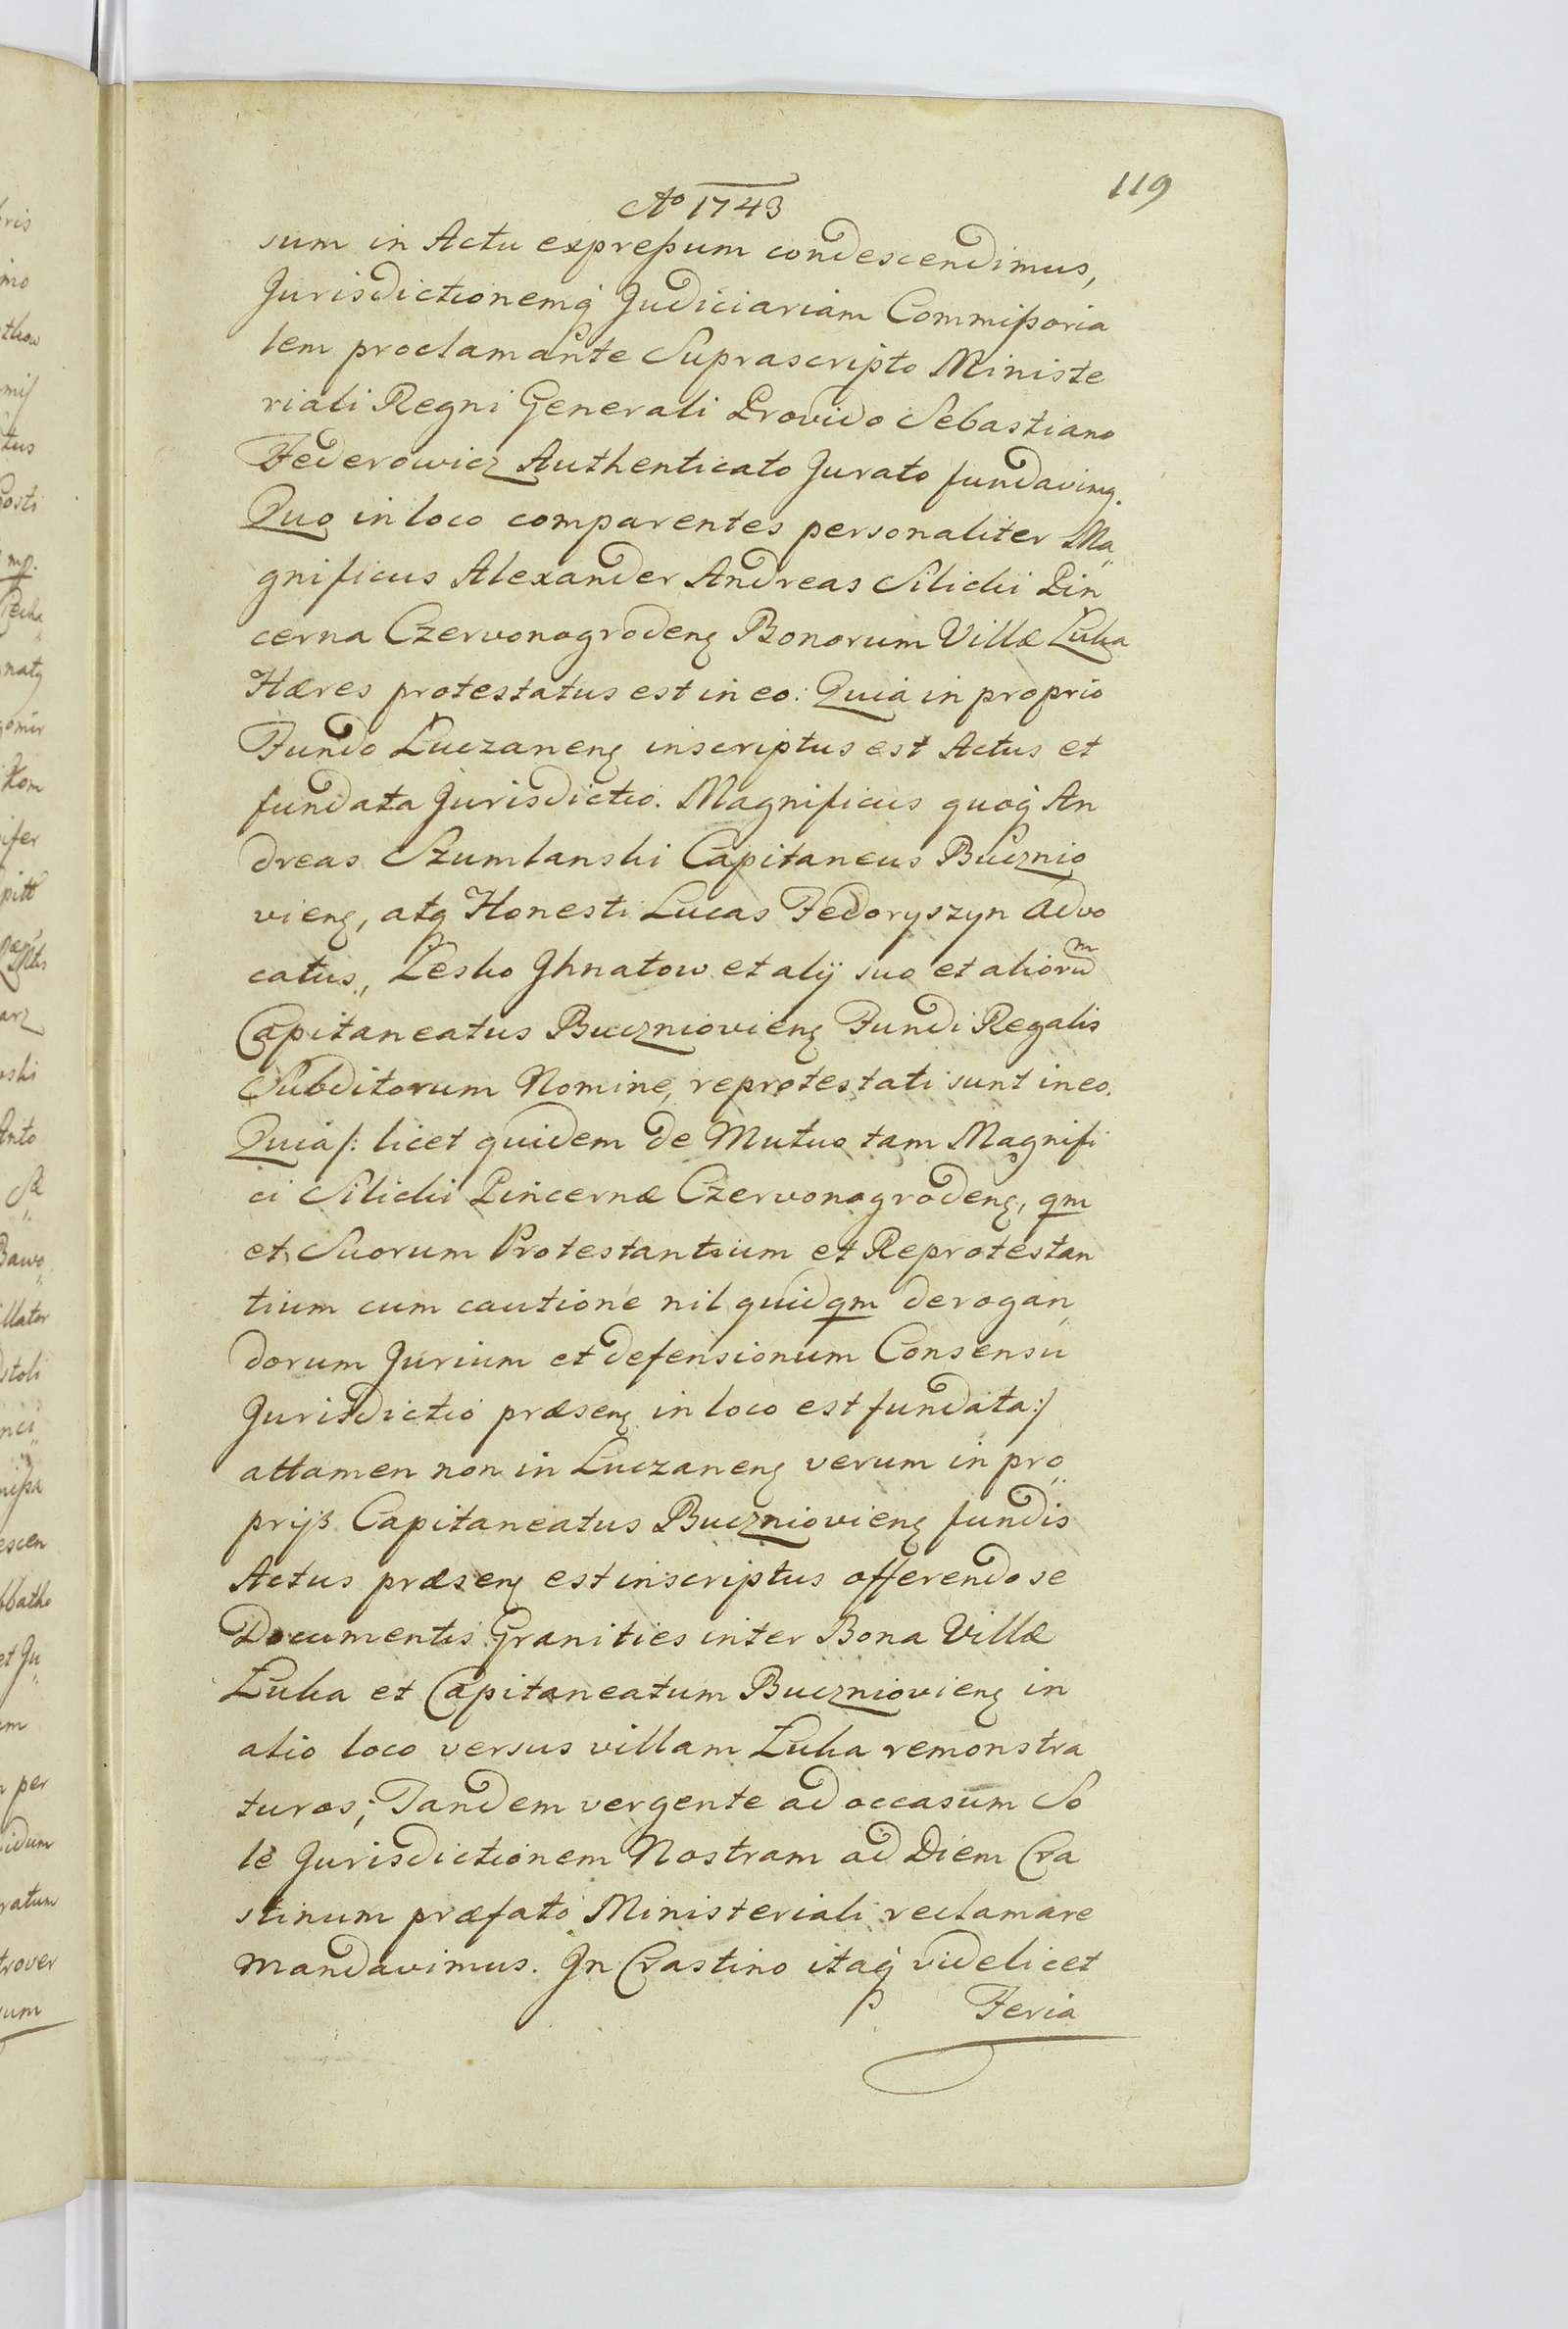 119
Ao 1743
sum in Actu expreßum condescendimus,
Jurisdictionemq Judiciariam Commißoria
lem proclamante Suprascripto Ministe
riali Regni Generali Provido Sebastiano
Federowicz Authenticato Jurato fundavimq.
Quo in loco comparentes personaliter Ma„
gnificus Alexander Andreas Silicki Pin
cerna Czervonogrodenς Bonorum Villæ Łuka
Hæres protestatus est in eo: Quia in proprio
Fundo Łuczanenς inscriptus est Actus et
fundata Jurisdictio. Magnificus quoq An
dreas Szumlanski Capitaneus Bucznio
vienς, atq Honesti Lucas Fedoryszyn Advo
catus, Lesko Jhnatow et alij suo et aliorum
Capitaneatus Buczniovienς Fundi Regalis
Subditorum Nomine, reprotestati sunt in eo.
Quia /: licet quidem de Mutuo tam Magnifi
ci Silicki Pincernæ Czervonogrodenς, qm
et Suorum Protestantium et Reprotestan
tium cum cautione nil quidqm derogan„
dorum Jurium et defensionum Consensu
Jurisdictio præsenς in loco est fundata :/
attamen non in Łuczanenς verum in pro„
prijs Capitaneatus Buczniovienς fundis
Actus præsenς est inscriptus offerendo se
Documentis Granities inter Bona Villæ
Łuka et Capitaneatum Buczniovienς in
alio loco versus villam Łuka remonstra
turos; Tandem vergente ad occasum So
le Jurisdictionem Nostram ad Diem Cra
stinum præfato Ministeriali reclamare
mandavimus. Jn Crastino itaq videlicet
Feria